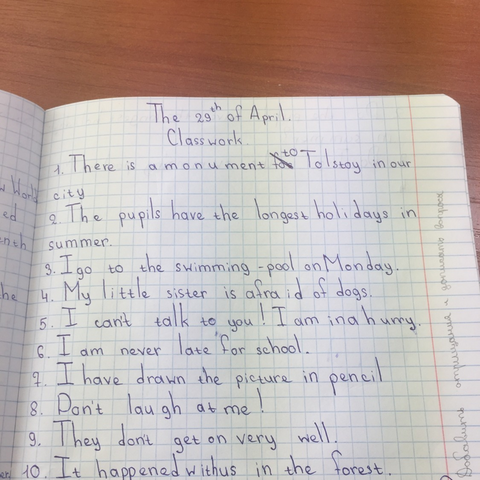 The 29th of April.
Classwork.
1. There is a monument to Tolstoy in our
city
2. The pupils have the longest holidays in
summer.
3. I go to the swimming-pool on Monday.
4. My little sister is afraid of dogs.
5. I can't talk to you! I am in a hurry.
6. I am never late for school.
7. I have drawn the picture in pencil
8. Don't laugh at me!
9. They don't get on very well.
10. It happened with us in the forest.
World
ed
he
Добавить отрицания и